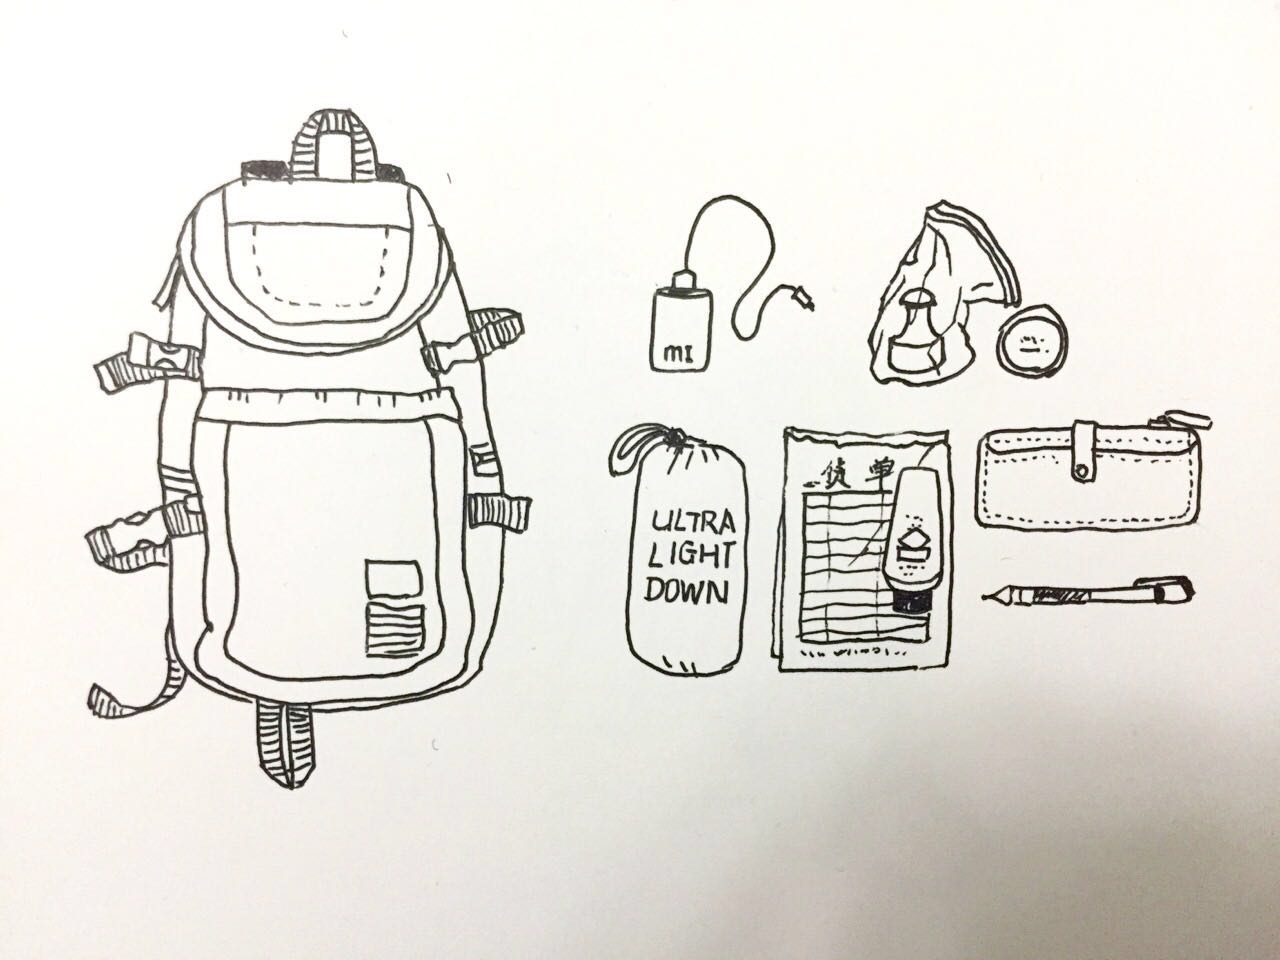 mI
ULTRA
LIGHT
DOWN
货单